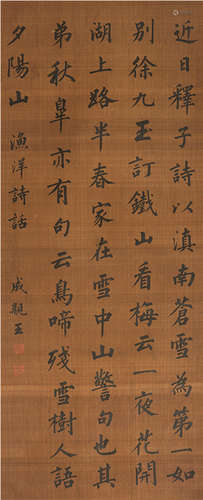 近日釋子詩以滇南蒼雪為第一如
別徐九玉訂鐵山看梅云一夜花開
湖上路半春家在雪中山警句也其
弟秋皐亦有句云鳥啼殘雪樹人語
夕陽山 漁洋詩話
成親王